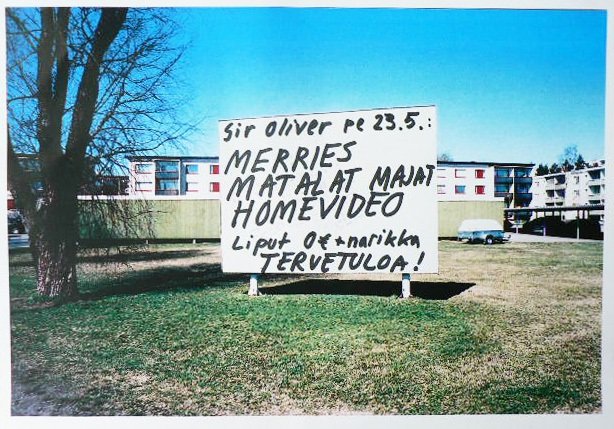 Sir Oliver pe 23.5.:
MERRIES
MATALAT MAJAT
HOMEVIDEO
Liput 0€ + narikka
TERVETULOA!